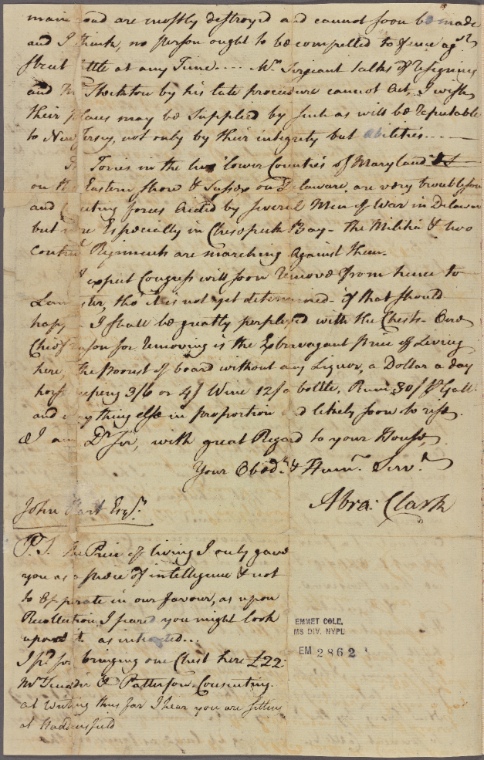 main and are mostly destroyed and cannot soon be made
and I think, no person ought to be compelled to serve ag.st
at any Time.... Mr. Sergeant talks of resigning
and Mr Stockton by his late procedure cannot Act, I wish
their places may be Supplied by such as will be reputable
to New Jersey, not only by their integrity but abilities.
Tories in the two lower Counties of Maryland
on the Eastern Shore & Sussex on Delaware, are very troublesome
and forces aided by several Men of War in Delaware
but Especially in Chesopeek Bay - the Militia & two
Regiments are marching against them.
I expect Congress will soon remove from hence to
tho it is not yet determined - if that should
I shall be greatly perplexed with the Chests -
Chief reason for removing is the Extravagant price of Living
here the poorest of board without any Liquor, a Dollar a day
3/6 or 4/ Wine 12/ a bottle, Rum 30/ Gall.
and every thing else in proportion and likely soon to rise.
I am Dr. Sir, with great Regard to your House,
Your Obedt. & Humb. Servt.
Abra: Clark
John Hart Esqr.
P.S. the Price of living I only gave
you as a piece of intelligence & not
to operate in our favour, as upon
Recollection I feared you might look
upon it as
I pd. for bringing one Chest here £22.
Mr & Patterson Consenting.
at writing thus far I hear you are sitting
at Haddonfield
EMMET COLL.
MS DIV. NYPL
EM 2862